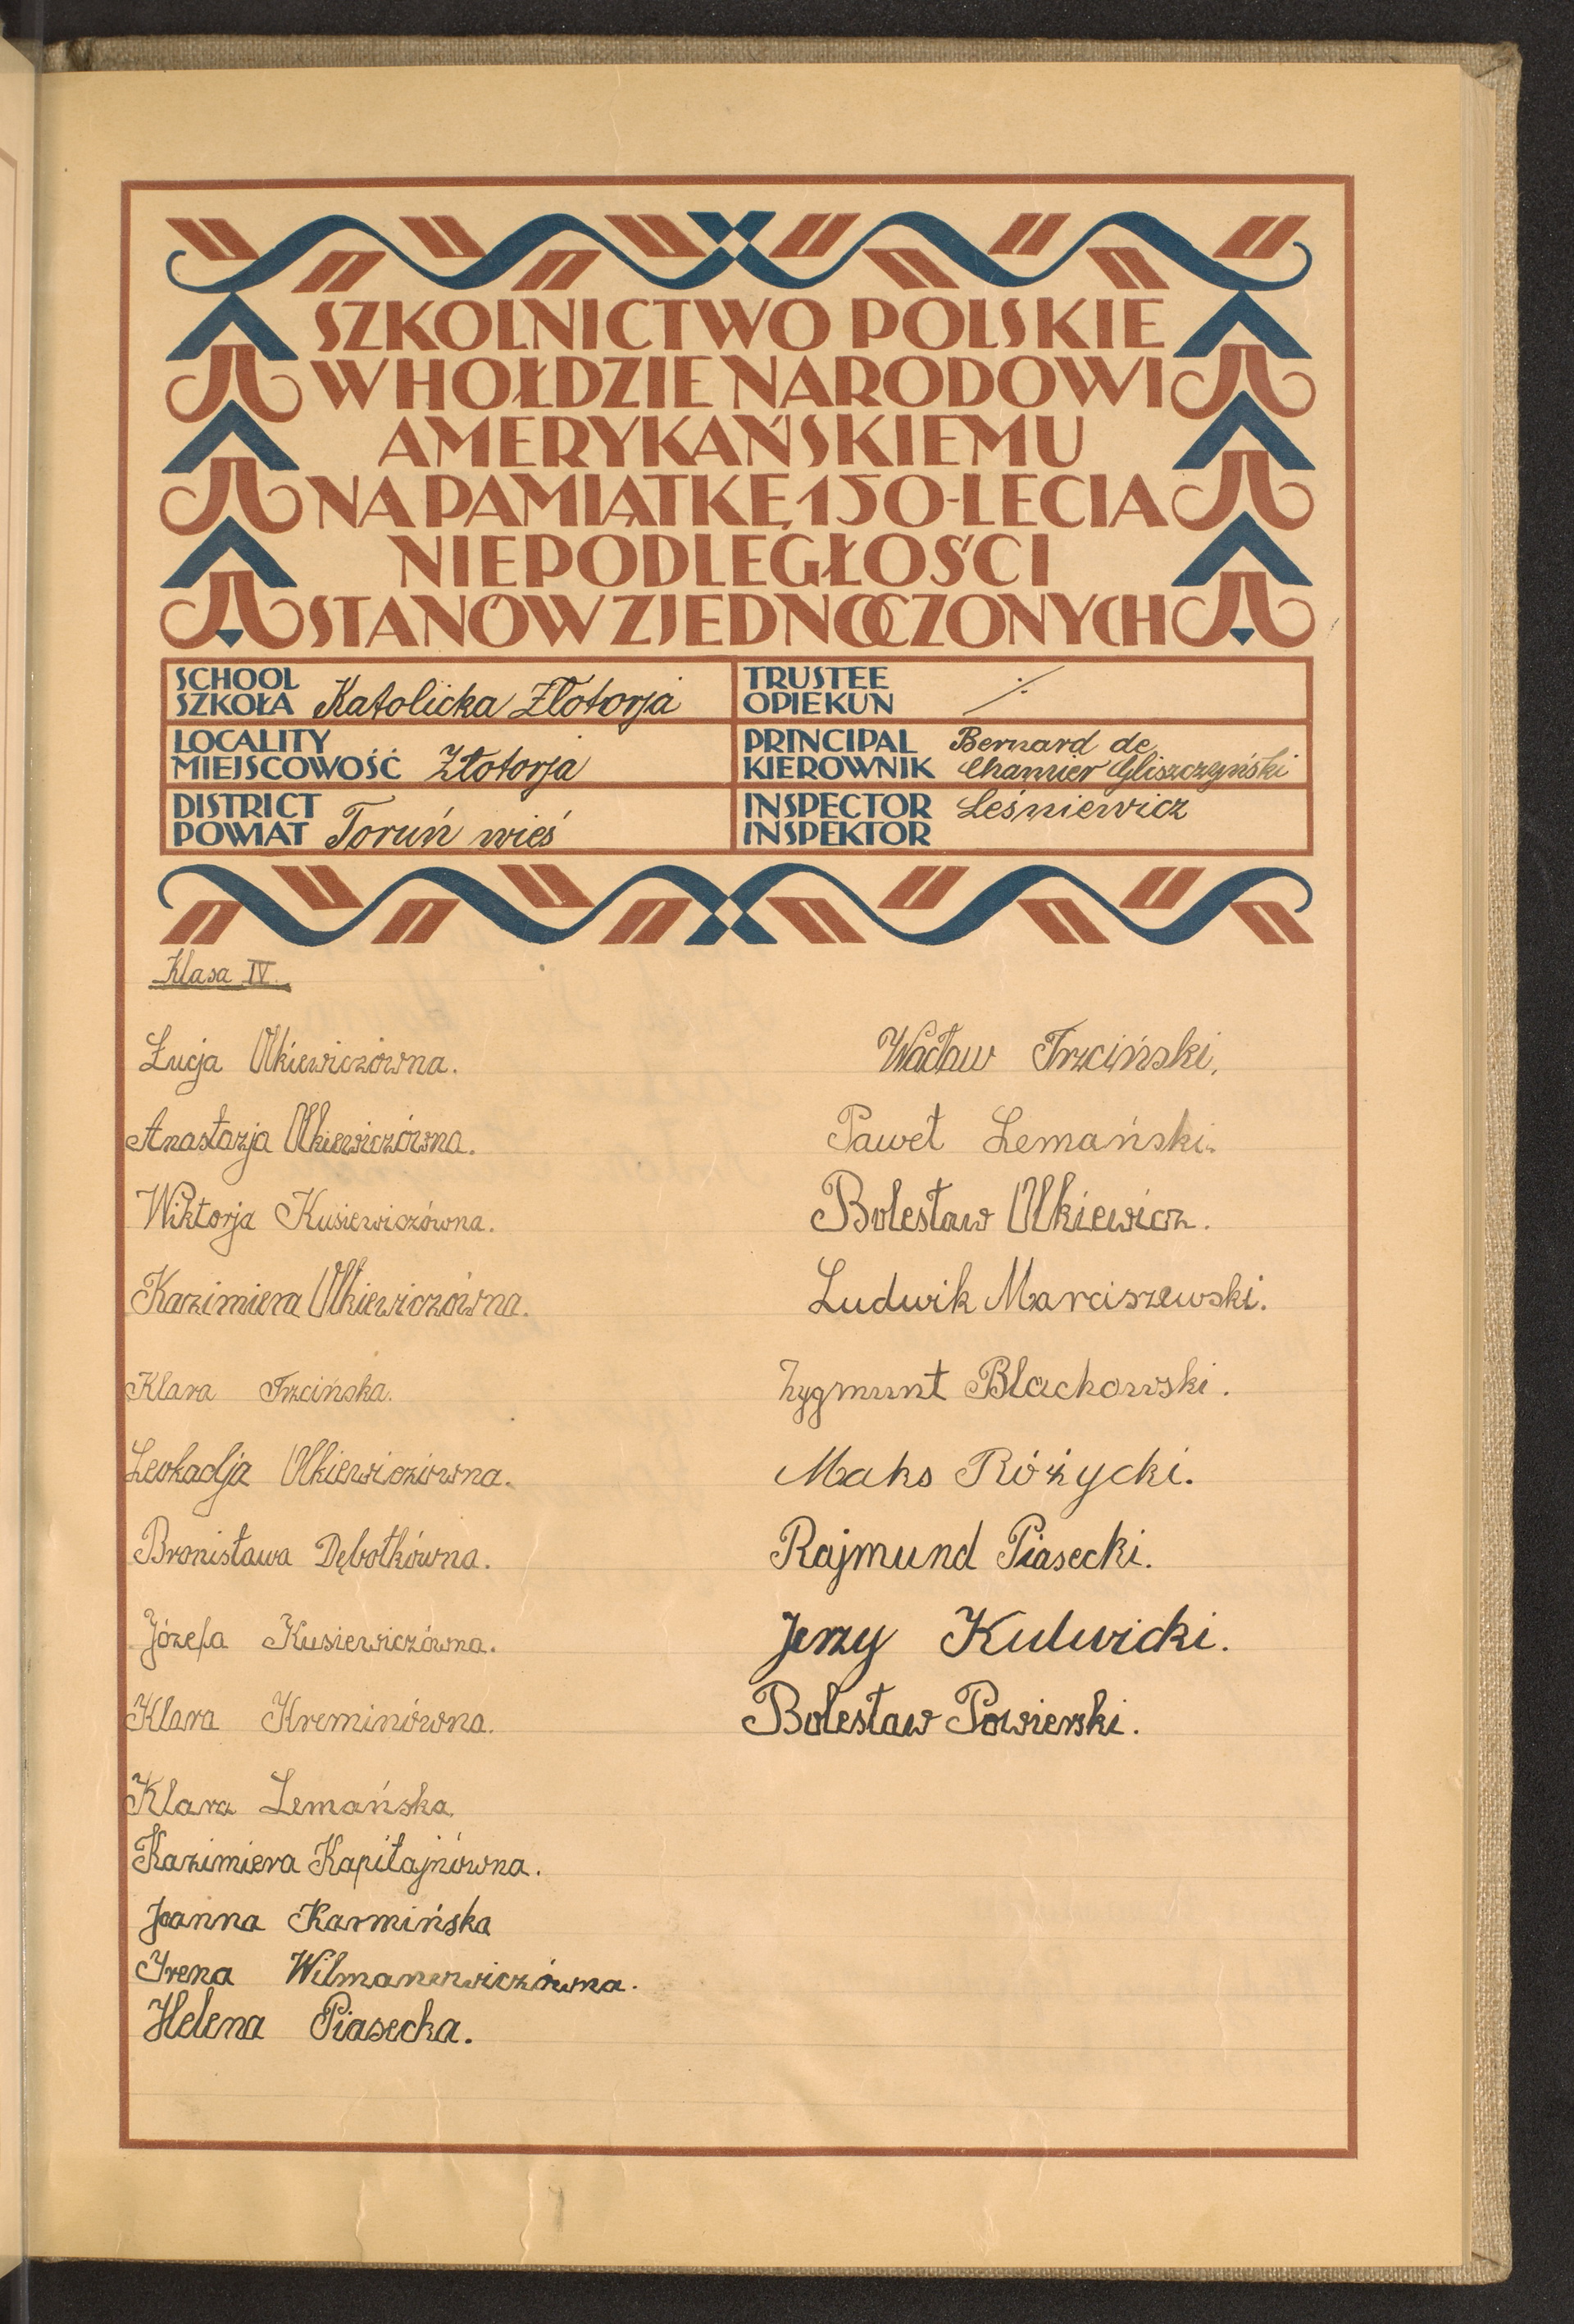 SZKOLNICTWO POLSKIE
W HOŁDZIE NARODOWI
AMERYKAŃSKIEMU
NA PAMIĄTKĘ 150-LECIA
NIEPODLEGŁOŚCI
STANÓW ZJEDNOCZONYCH
SCHOOL
SZKOŁA Katolicka Złotorja
TRUSTEE
OPIEKUN ·/·
LOCALITY
MIEJSCOWOŚĆ Złotorja
PRINCIPAL Bernard de
KIEROWNIK Chamier Gliszczyński
DISTRICT
POWIAT Toruń wieś
INSPECTOR Leśniewicz
INSPEKTOR
Klasa IV.
Łucja Olkiewiczówna.
Anastazja Olkiewiczówna.
Wiktorja Kusiewiczówna.
Kazimiera Olkiewiczówna.
Klara Trzcińska.
Leokadja Olkiewiczówna.
Bronisława Dębotkówna.
Józefa Kusiewiczówna.
Klara Kreminówna.
Klara Lemańska.
Kazimiera Kapitajnówna.
Joanna Karmińska
Irena Wilmanowiczówna.
Helena Piasecka.
Wacław Trzciński,
Paweł Lemański.
Bolesław Olkiewicz.
Ludwik Marciszewski.
Zygmunt Blachowski.
Maks Różycki.
Rajmund Piasecki.
Jerzy Kulwicki.
Bolesław Powierski.